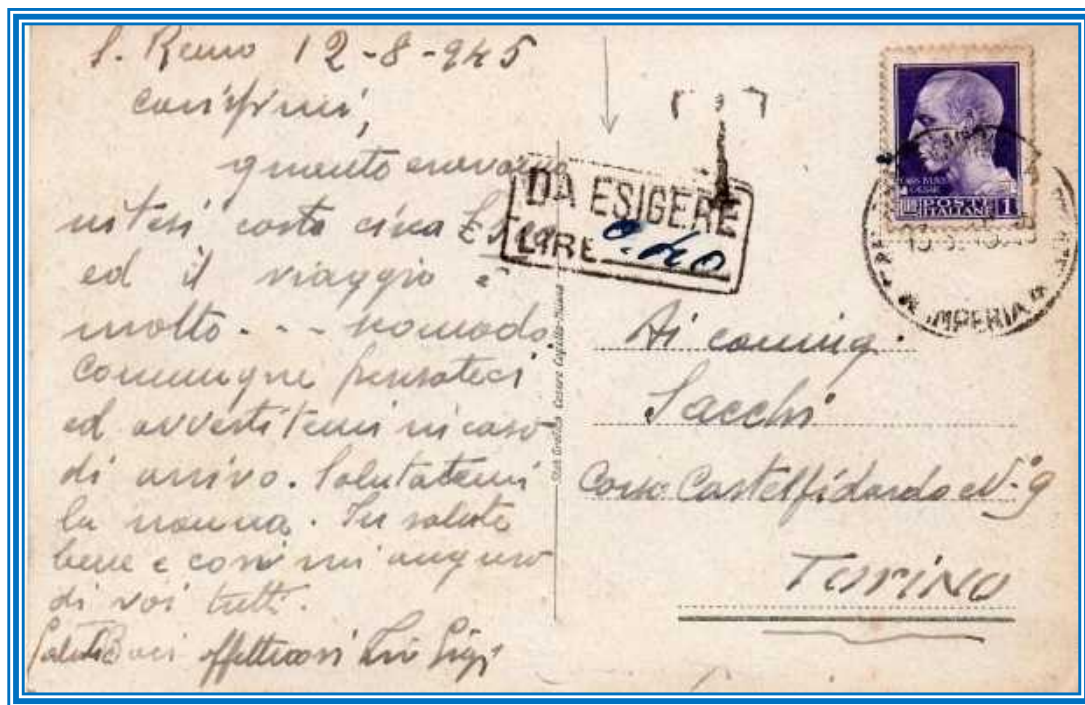 S. Remo 12-8-945
Carissimi,
quanto eravamo
intesi costa circa
ed il viaggio è
molto - - - nomodo
Comunque pensateci
ed avvertitemi in caso
di arrivo. Salutatemi
la nonna. In salute
bene e così mi auguro
di voi tutti.
Saluti Baci affettuosi Zio Gigi
T
DA ESIGERE
LIRE 0.40
POSTE
ITALIANE 1
IMPERIA
Ai coniug.
Sacchi
Corso Castelfidardo N. 9
TORINO